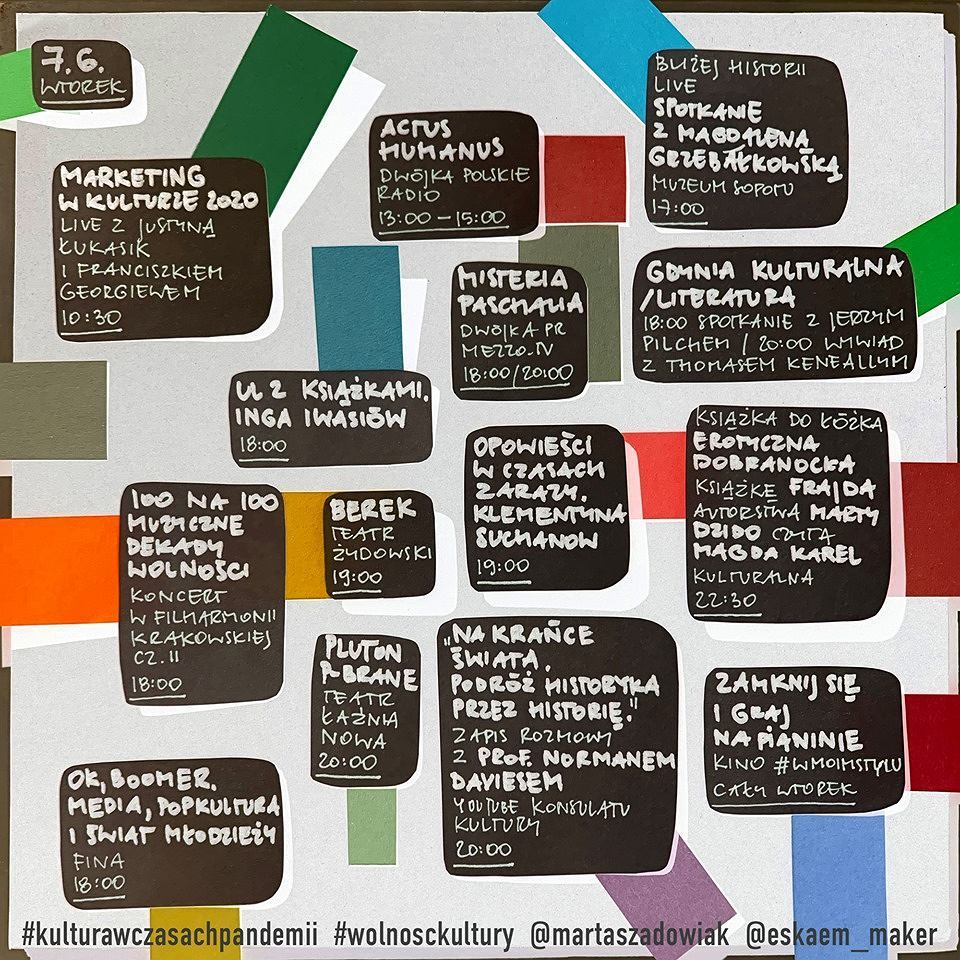 7.6.
WTOREK
MARKETING
W KULTURZE 2020
LIVE Z JUSTYNĄ
ŁUKASIK
I FRANCISZKIEM
GEORGIEWEM
10:30
ACTUS
HUMANUS
DWÓJKA POLSKIE
RADIO
13:00 – 15:00
BLIŻEJ HISTORII
LIVE
SPOTKANIE
Z MAGDALENĄ
GRZEBAŁKOWSKĄ
MUZEUM SOPOTU
17:00
MISTERIA
PASCHALIA
DWÓJKA PR
MEZZO.TV
18:00/20:00
GDYNIA KULTURALNA
/LITERATURA
18:00 SPOTKANIE Z JERZYM
PILCHEM / 20:00 WYWIAD
Z THOMASEM KENEALLYM
UL Z KSIĄŻKAMI.
INGA IWASIÓW
18:00
OPOWIEŚCI
W CZASACH
ZARAZY.
KLEMENTYNA
SUCHANOW
19:00
KSIĄŻKA DO ŁÓŻKA
EROTYCZNA
DOBRANOCKA
KSIĄŻKĘ FRAJDA
AUTORSTWA MARTY
DZIDO CZYTA
MAGDA KAREL
KULTURALNA
22:30
100 NA 100
MUZYCZNE
DEKADY
WOLNOŚCI
KONCERT
W FILHARMONII
KRAKOWSKIEJ
CZ. II
18:00
BEREK
TEATR
ŻYDOWSKI
19:00
PLUTON
P-BRANE
TEATR
ŁAŹNIA
NOWA
20:00
"NA KRAŃCE
ŚWIATA.
PODRÓŻ HISTORYKA
PRZEZ HISTORIĘ."
ZAPIS ROZMOWY
Z PROF. NORMANEM
DAVIESEM
YOUTUBE KONSULATU
KULTURY
20:00
ZAMKNIJ SIĘ
I GRAJ
NA PIANINIE
KINO #WMOIMSTYLU
CAŁY WTOREK
OK, BOOMER.
MEDIA, POPKULTURA
I ŚWIAT MŁODZIEŻY
FINA
18:00
#kulturawczasachpandemii #wolnosckultury @martaszadowiak @eskaem_maker